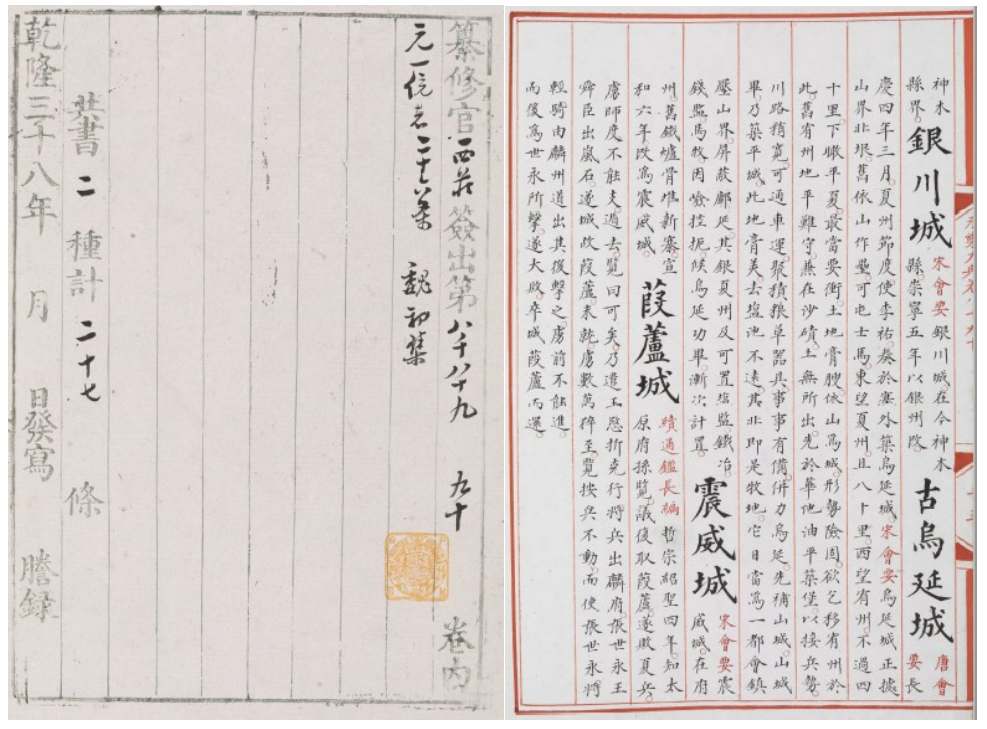 纂修官 一西莊 簽出第 八千八十九 九十 卷内
元一統志二十六條 魏初集
共書 二 種計 二十七 條
乾隆三十八年 月 日發寫 謄録
神木
縣界
銀川城
宋會要銀川城在今神木
縣崇寧五年以銀州改
古烏延城
唐會
要長
慶四年三月夏州節度使李祐奏於塞外築烏延城宋會要烏延城正據
山界北垠舊依山作壘可屯士馬東望夏州且八十里西望宥州不過四
十里下瞰平夏最當要衝土地膏腴依山爲城形勢險固欲乞移宥州於
此舊有州地平難守兼在沙磧土無所出先於華池油平築堡以接兵勢
川路稍寛可通車運聚積粮草器具事事有備併力烏延先補山城山城
畢乃築平城此地膏美去塩池不遠其北即是牧地它日當爲一都會鎮
壓山界屏蔽鄜延其銀夏州及可置塩監鐵冶
錢監馬牧因險控扼候烏延功畢漸次計置
震威城
宋會要震
威城在府
州舊鐵爐骨堆新寨宣
和六年改爲震威城
葭蘆城
續通鑑長編哲宗紹聖四年知太
原府孫覽議復取葭蘆遂敗夏兵
虜師度不能支過去覽曰可矣乃遣王愍折克行將兵出麟府張世永王
舜臣出嵐石遂城故葭蘆未就虜數萬猝至覽按兵不動而使張世永將
輕騎由麟州道出其後擊之虜前不能進
而復爲世永所擊遂大敗卒城葭蘆而還